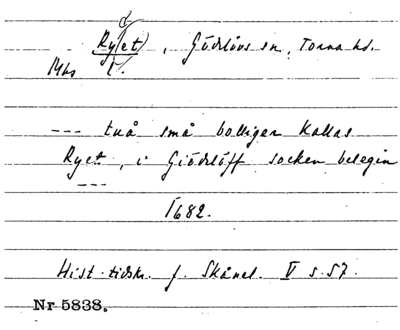 Ry(et), Gödelövs sn, Torna hd.
--- två små bolliger Kallas
Ryet, i Giödelöff socken belegin
---
1682.
Hist. tidskr. f. Skånel. V s. 57.
Nr 5838.